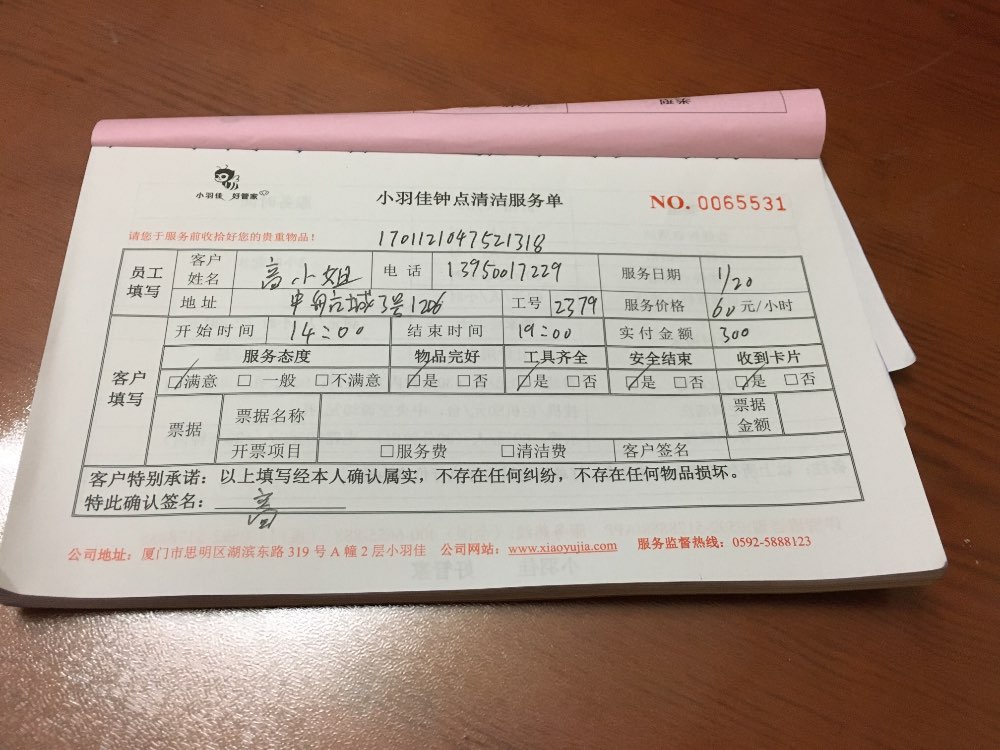 小羽佳 好管家
小羽佳钟点清洁服务单
NO. 0065531
请您于服务前收拾好您的贵重物品!
1701121047521318
员工填写 客户姓名 高小姐 电话 13950017229 服务日期 1/20
地址 3号1206 工号 2379 服务价格 60元/小时
客户填写 开始时间 14:00 结束时间 19:00 实付金额 300
服务态度 物品完好 工具齐全 安全结束 收到卡片
☑满意 □一般 □不满意 ☑是 □否 ☑是 □否 ☑是 □否 ☑是 □否
票据 票据名称 票据金额
开票项目 □服务费 □清洁费 客户签名
客户特别承诺：以上填写经本人确认属实，不存在任何纠纷，不存在任何物品损坏。
特此确认签名： 高
公司地址：厦门市思明区湖滨东路 319 号 A 幢 2 层小羽佳 公司网站：www.xiaoyujia.com 服务监督热线：0592-5888123